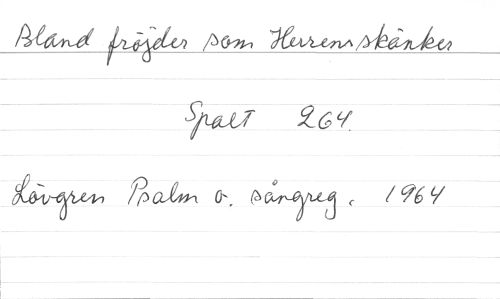 Bland fröjder som Herrens skänker
Spalt 264.
Lövgren Psalm o. sångreg. 1964